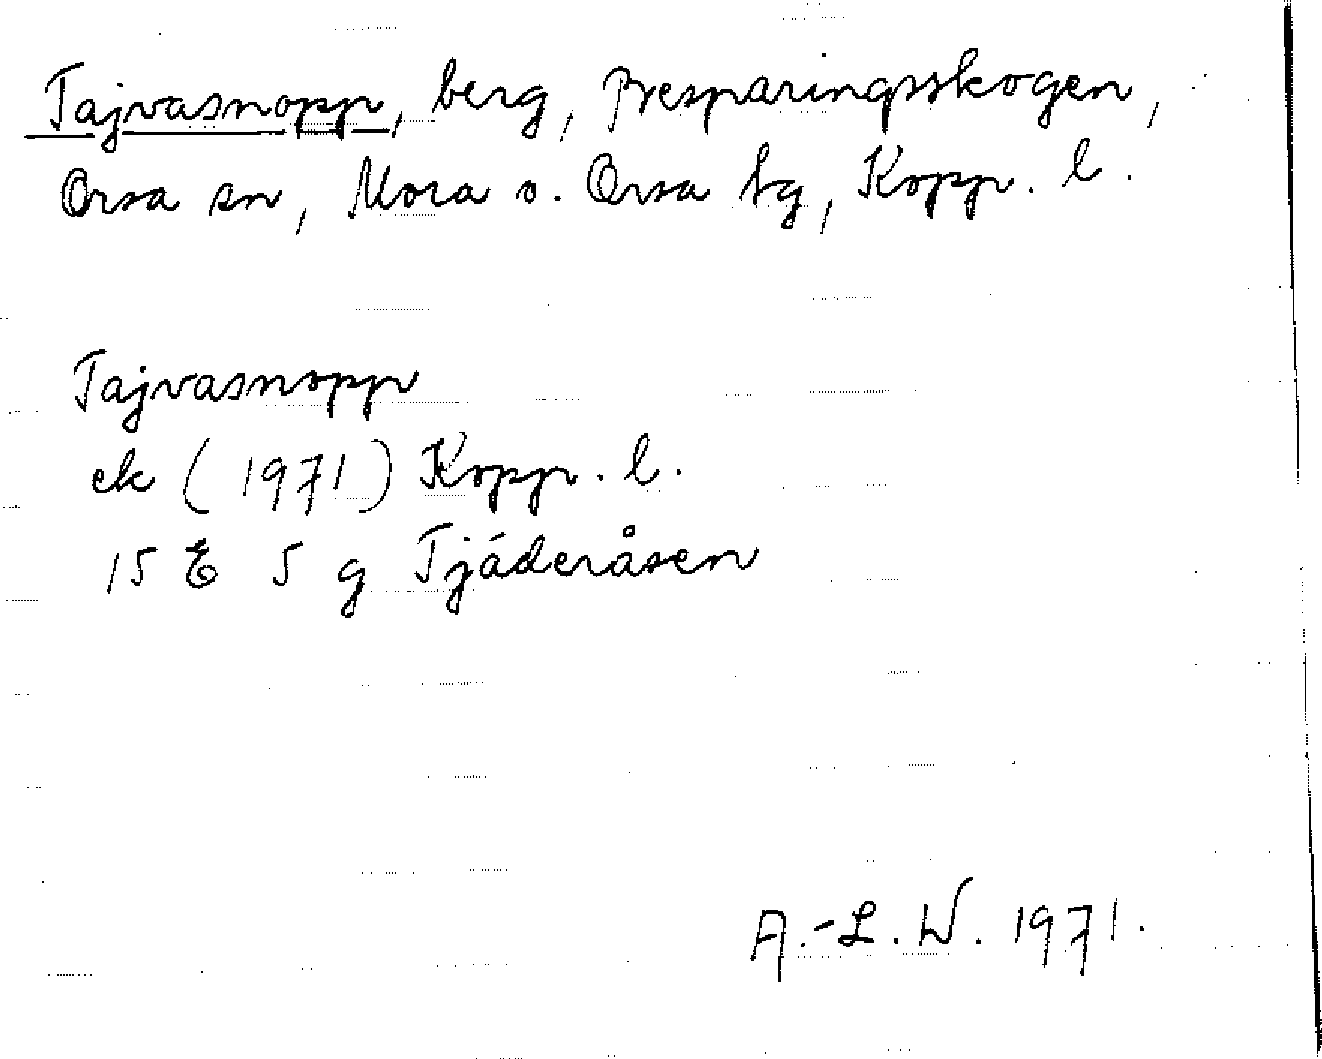 Tajvasnopp, berg, Besparingsskogen,
Orsa sn, Mora o. Orsa tg, Kopp. l.
Tajvasnopp
ek (1971) Kopp. l.
15 E 5 g Tjäderåsen
A.-L. W. 1971.